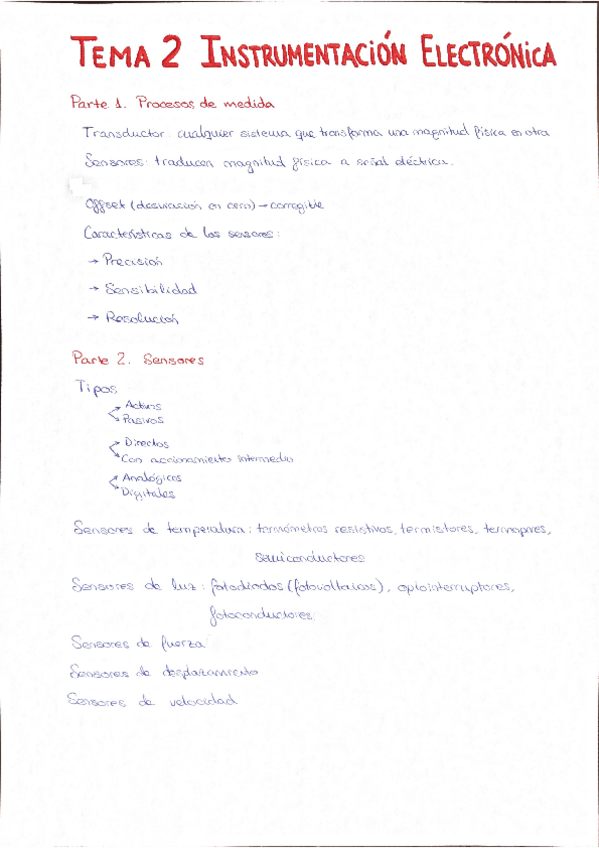 TEMA 2 INSTRUMENTACIÓN ELECTRÓNICA
Parte 1. Procesos de medida
Transductor: cualquier sistema que transforma una magnitud física en otra
Sensores: traducen magnitud física a señal eléctrica.
Offset (desviación en cero) → corregible
Características de los sensores:
→ Precisión
→ Sensibilidad
→ Resolución
Parte 2. Sensores
Tipos
Activos
Pasivos
Directos
Con accionamiento intermedio
Analógicos
Digitales
Sensores de temperatura: termómetros resistivos, termistores, termopares,
semiconductores
Sensores de luz: fotodiodos (fotovoltaicos), optointerruptores,
fotoconductores.
Sensores de fuerza
Sensores de desplazamiento
Sensores de velocidad